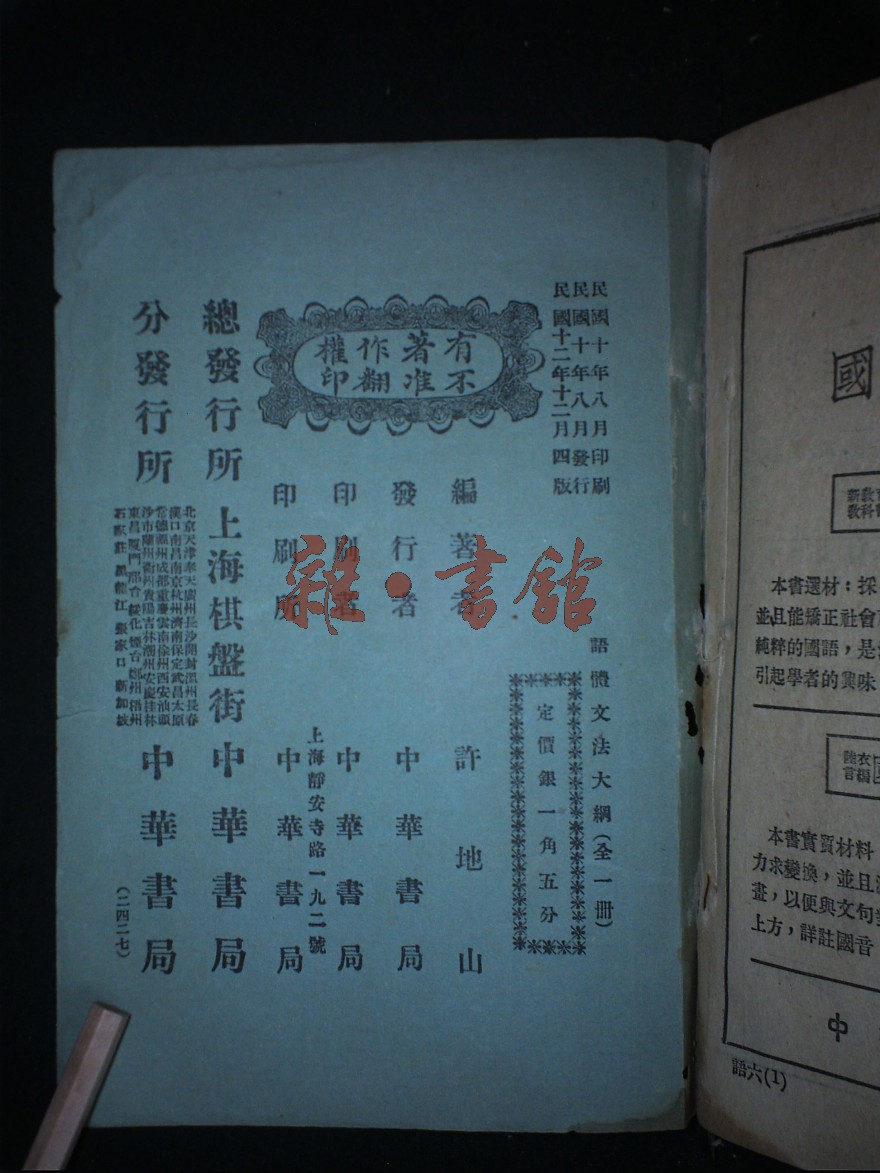 民國十年八月印刷
民國十年八月發行
民國十二年十二月四版
語體文法大綱(全一冊)
定價銀一角五分
有著作權
不准翻印
編著者 許地山
發行者 中華書局
印刷者 中華書局
上海靜安寺路一九二號
印刷所 中華書局
總發行所 上海棋盤街 中華書局
分發行所
北京天津奉天廣州長沙開封溫州長春
漢口南昌南京杭州濟南保定武昌太原
常德福州成都重慶雲南徐州西安汕頭
沙市蘭州衢州貴陽吉林潮州安慶桂林
東昌廈門邢台綏化煙台鄭州梧州
石家莊 黑龍江 張家口 新加坡
中華書局
(二四二七)
雜·書館
國
本書選材:採
並且能矯正社會
純粹的國語,是
引起學者的興味
本書實質材料
力求變換,並且
畫,以便與文句
上方,詳註國音
中
語六(1)